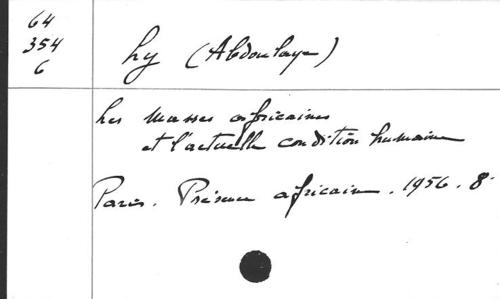 64
354
6
Ly (Abdoulaye)
Les Masses africaines
et l'actuelle condition humaine
Paris. Présence africaine. 1956. 8°